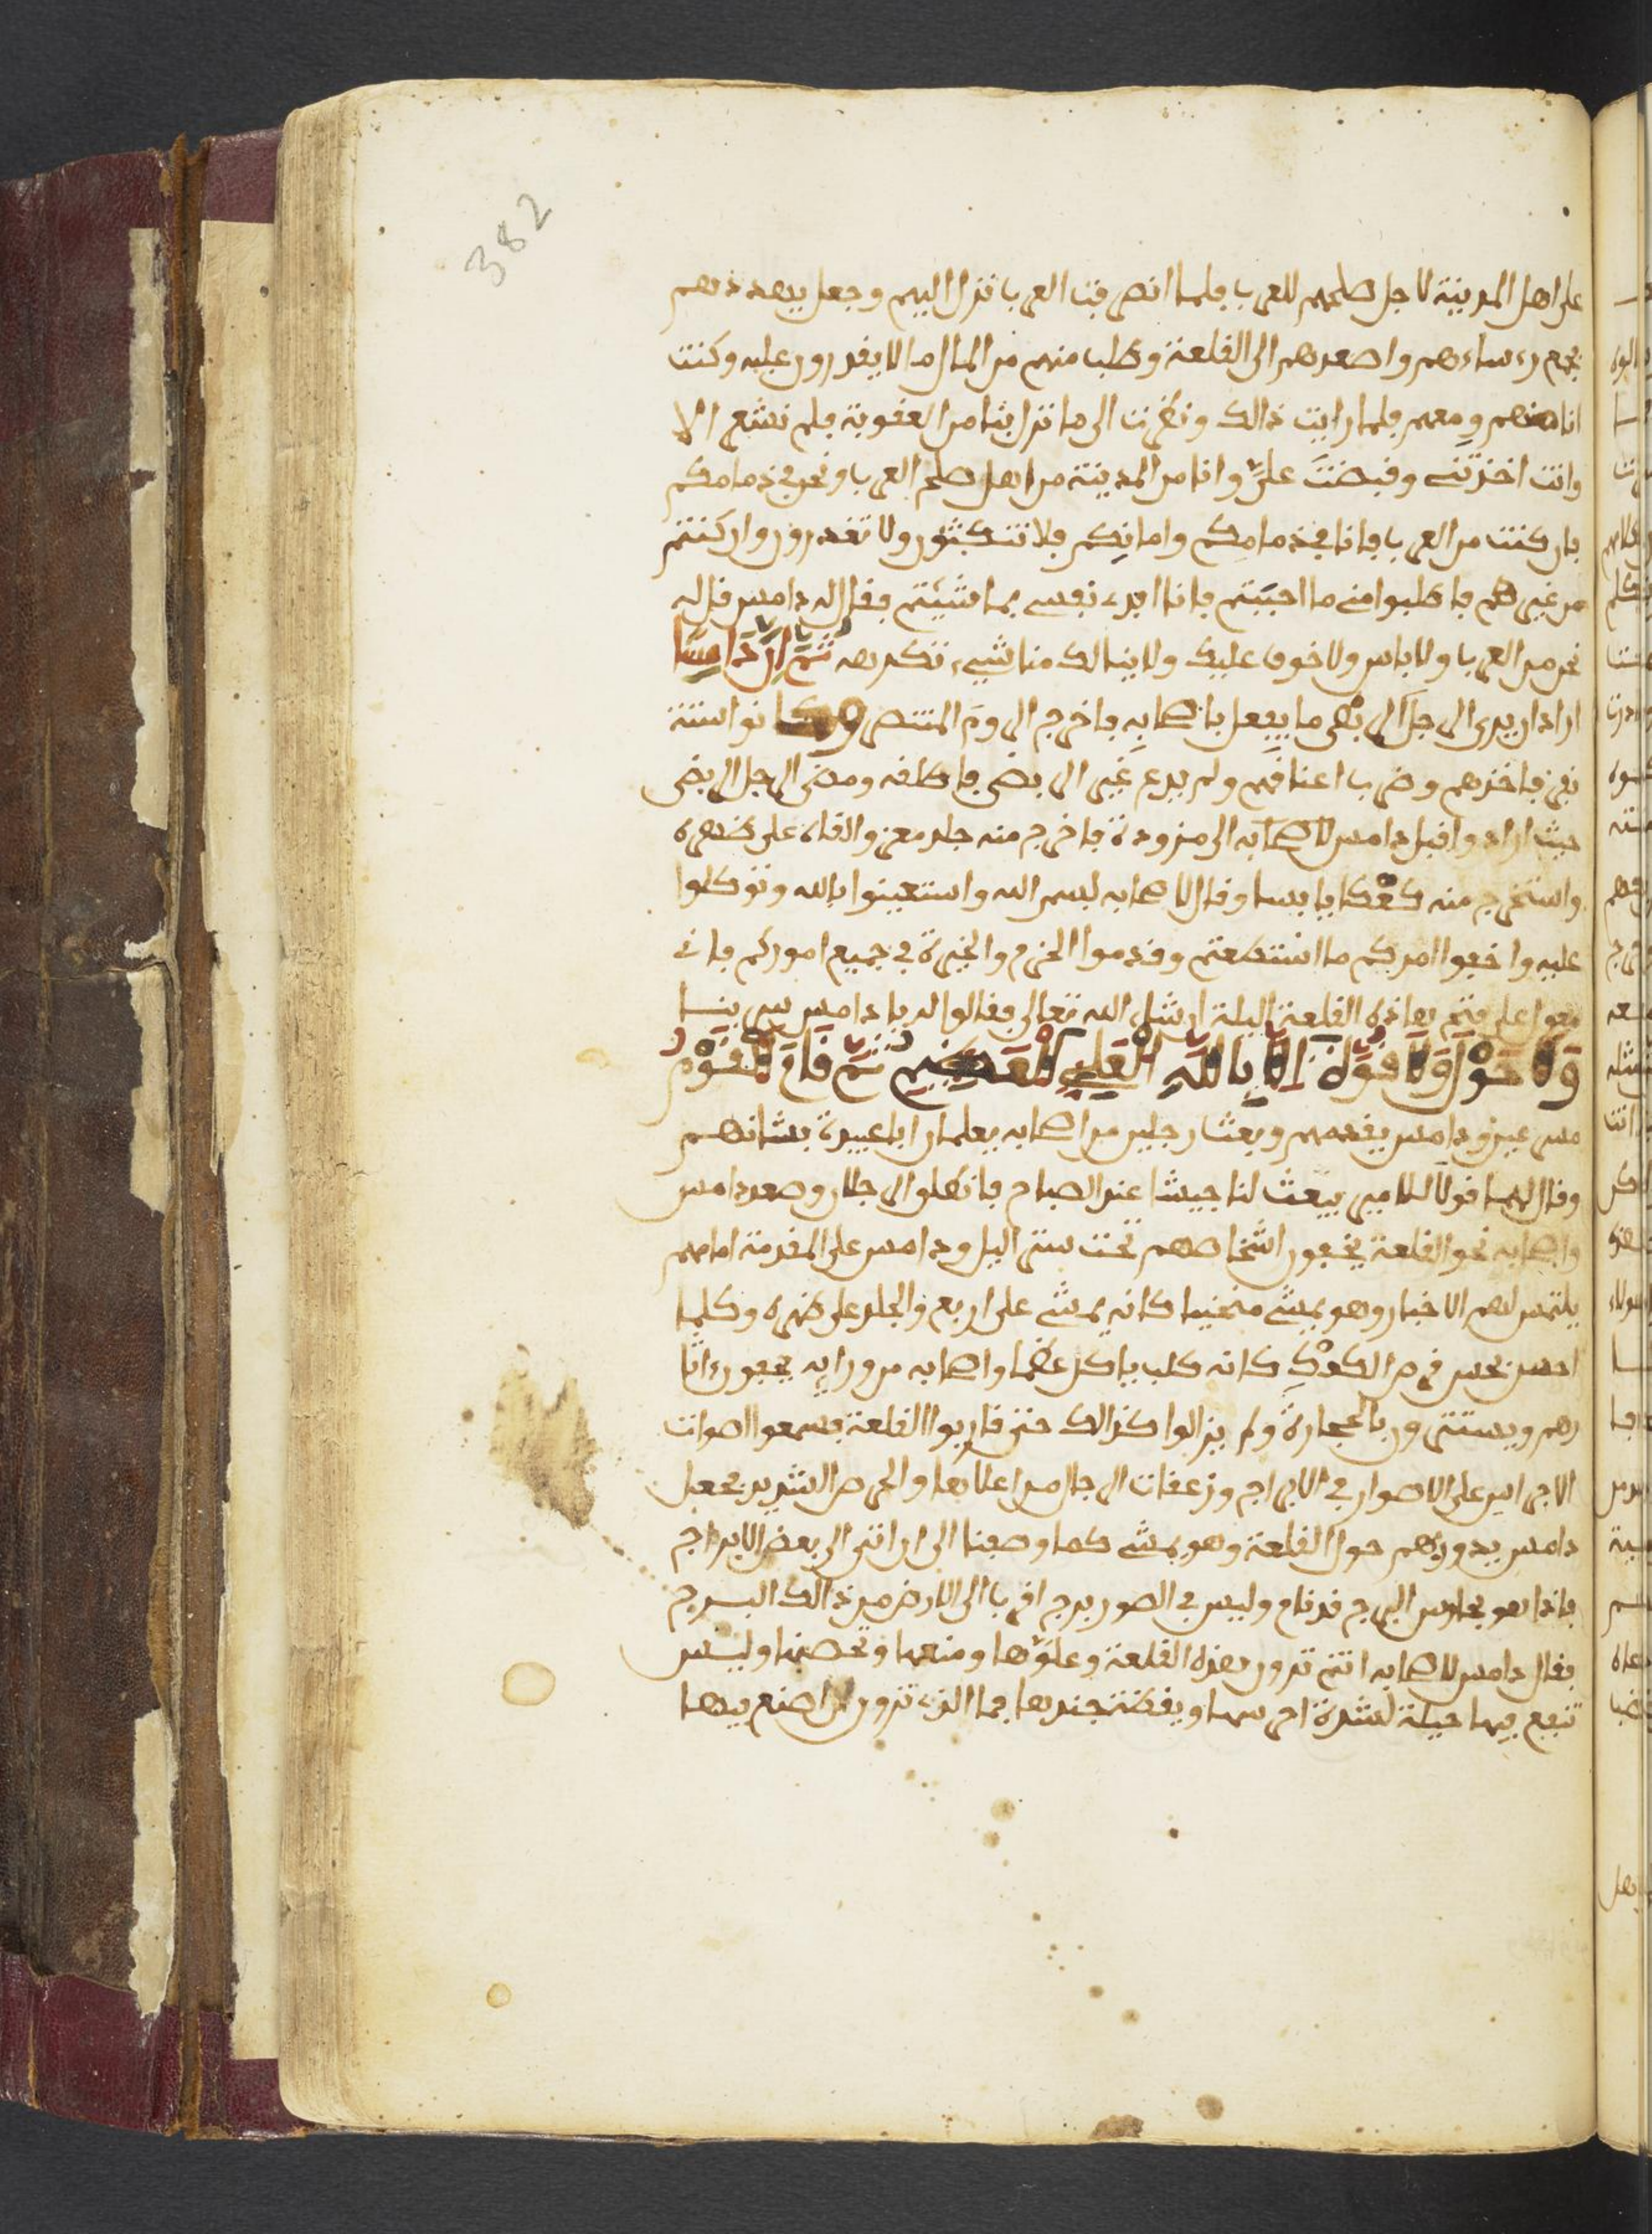 382
على اهل المدينة لاجل صلحهم للعرب فلما انصرفت العرب نزل اليهم وجعل يهددهم
فجمع رءساءهم واصعدهم الى القلعة وطلب منهم من المال ما لا يقدرون عليه وكنت
انا منهم ومعهم فلما رايت ذالك ونظرت الى ما نزل بنا من العقوبة فلم نشعر الا
وانت اخذتني وقبضت عليّ وانا من المدينة من اهل صلح العرب ونحن في ذمامكم
فان كنت من العرب فانا في ذمامكم وامانكم فلا تنكثون ولا تغدرون وان كنتم
من غيرهم فاطلبوا مني ما احببتم فانا افدي نفسي بما شئتم فقال له دامس قال له
نحن من العرب ولا باس ولا خوف عليك ولا ينالك منا شيء تكرهه ثم ان دامسا
اراد ان يرى الرجل الى بْرى ما يفعل باصحابه فاخرج الروم المنتصرة وكانوا ستة
نفر فاخذهم وضرب اعناقهم ولم يدع غير الربضي فاطلقه ومضى الرجل الربضي
حيث اراد واقبل دامس لاصحابه الى مزودة فاخرج منه جلد معز والقاه على ظهره
واستخرج منه كعكا يابسا وقال لاصحابه بسم الله واستعينوا بالله وتوكلوا
عليه واخفوا امركم ما استطعتم وقدموا الحزم والخيرة في جميع اموركم فاني
معول على فتح هاذه القلعة اليلة ان شاء الله تعالى فقالوا له يا دامس سر بنا
وَلَا حَوْلَ وَلَا قُوَّةَ إِلَّا بِاللَّهِ الْعَلِيِّ الْعَظِيمِ ثم قام القوم
مسرعين ودامس يقدمهم وبعث رجلين من اصحابه يعلمان ابا عبيدة بشانهم
وقال لهما قولا للامير يبعث لنا جيشا عند الصباح فانطلق الرجلان وصعد دامس
واصحابه نحو القلعة يخفون اشخاصهم تحت ستر اليل ودامس على المقدمة امامهم
يلتمس لهم الاخبار وهو يمشي منحنيا كانه يمشي على اربع والجلد على ظهره وكلما
احس بحس قرض الكعْك كانه كلب ياكل عظما واصحابه من ورايه يقفون ءاثا
رهم ويستترون بالحجارة ولم يزالوا كذالك حتى قاربوا القلعة فسمعوا اصوات
الاحراس على الاصوار في الابراج وزعقات الرجال من اعلاها والحرص الشديد فجعل
دامس يدور بهم حول القلعة وهو يمشي كما وصفنا الى ان اتى الى بعض الابراج
فاذا هو بحارس البرج قد نام وليس في الصور برج اقرب الى الارض من ذالك البرج
فقال دامس لاصحابه انتم ترون هذه القلعة وعلوّها ومنعها وتحصنها وليس
تنفع فيها حيلة لشدة احرسها ويقظة جندها فما الذي ترون ان اصنع فيها